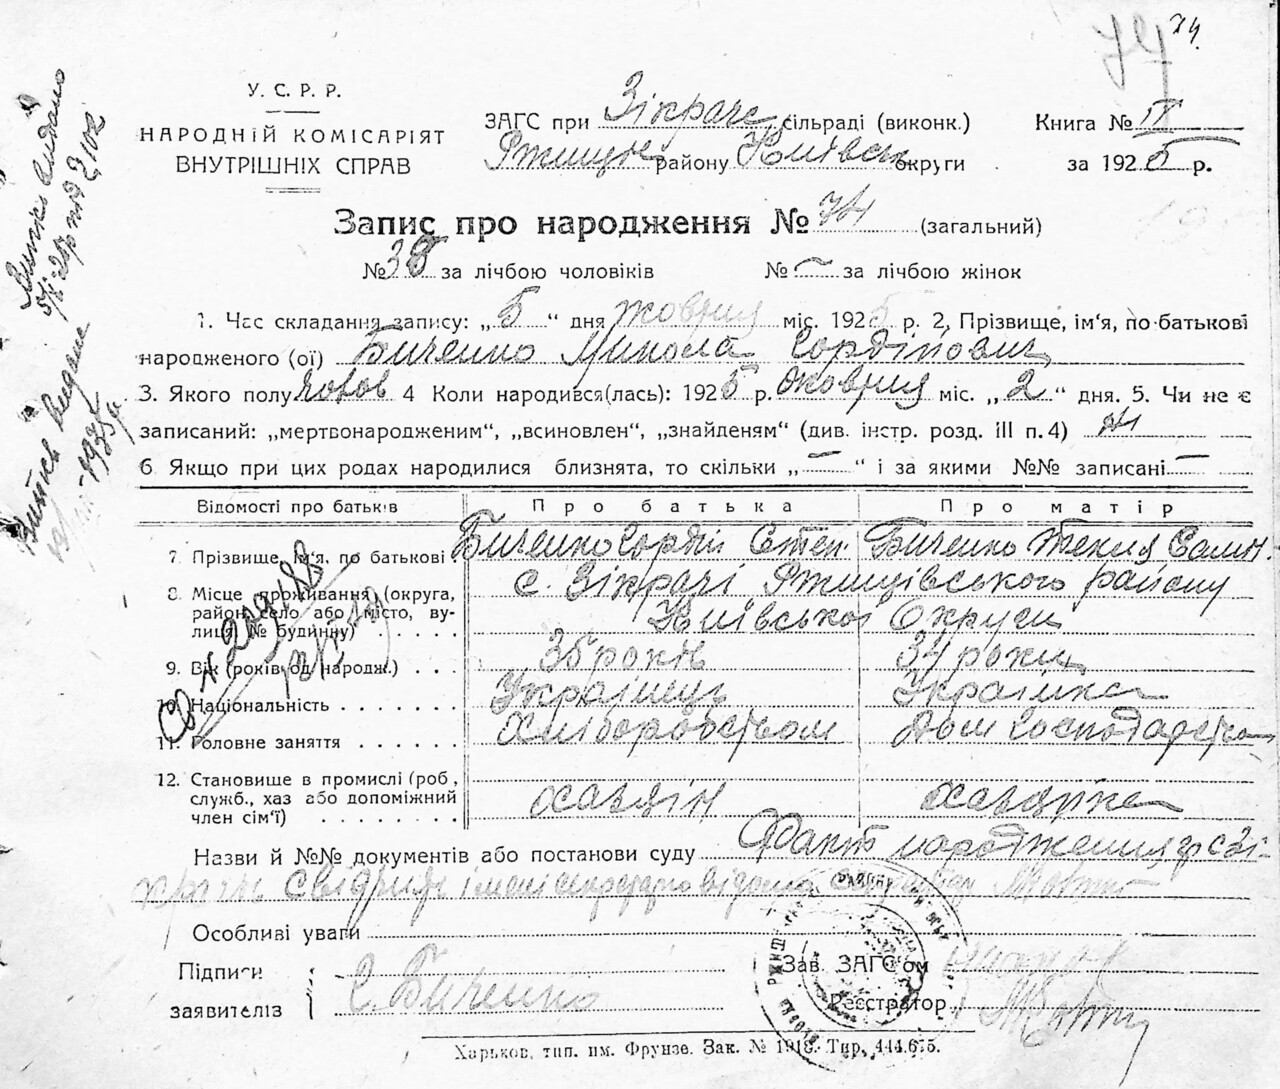 74
74.
У. С. Р. Р.
НАРОДНІЙ КОМІСАРІЯТ
ВНУТРІШНІХ СПРАВ
ЗАГС при Зікрачє сільраді (виконк.)
Ржищів району Київськ округи
Книга № II
за 1925 р.
Запис про народження № 74 (загальний)
№ 38 за лічбою чоловіків № — за лічбою жінок
1. Час складання запису: „5“ дня жовтня міс. 1925 р. 2. Прізвище, ім'я, по-батькові
народженого (ої) Биченко Микола Гордійович
3. Якого полу чолов 4 Коли народився(лась): 1925 р. жовтня міс. „2“ дня. 5. Чи не є
записаний: „мертвонародженим“, „всиновлен“, „знайденям“ (див. інстр. розд. III п. 4) Ні
6. Якщо при цих родах народилися близнята, то скільки „—“ і за якими №№ записані —
Відомості про батьків Про батька Про матір
7. Прізвище, ім'я, по батькові Биченко Гордій Степ. Биченко Текля
8. Місце проживання (округа, с. Зікрачі Ржищівського району
район, село або місто, ву-
лиця, № будинку) . . . . Київської Округи
9. Вік (років од народж.) . . . 35 років 34 роки
10. Національність . . . . . . . Українець Українка
11. Головне заняття . . . . . . Хліборобством Дом господарство
12. Становище в промислі (роб.,
служб., хаз або допоміжний хазяїн хазяйка
член сім'ї) . . . . . . . .
Назви й №№ документів або постанови суду Факт народження гр с Зі-
Особливі уваги
Підписи
заявителів С. Биченко
Зав. ЗАГС'ом
Реєстратор
Харьков, тип. им. Фрунзе. Зак. № 1918. Тир. 444.675.